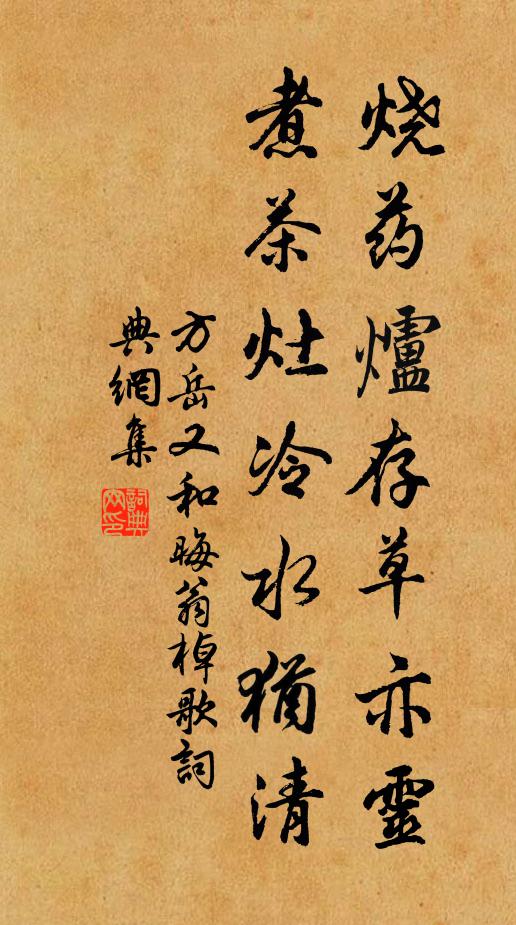 烧药爐存草亦靈
煮茶灶冷水猶清
方岳又和晦翁棹歌詞
典網集
詞典網印